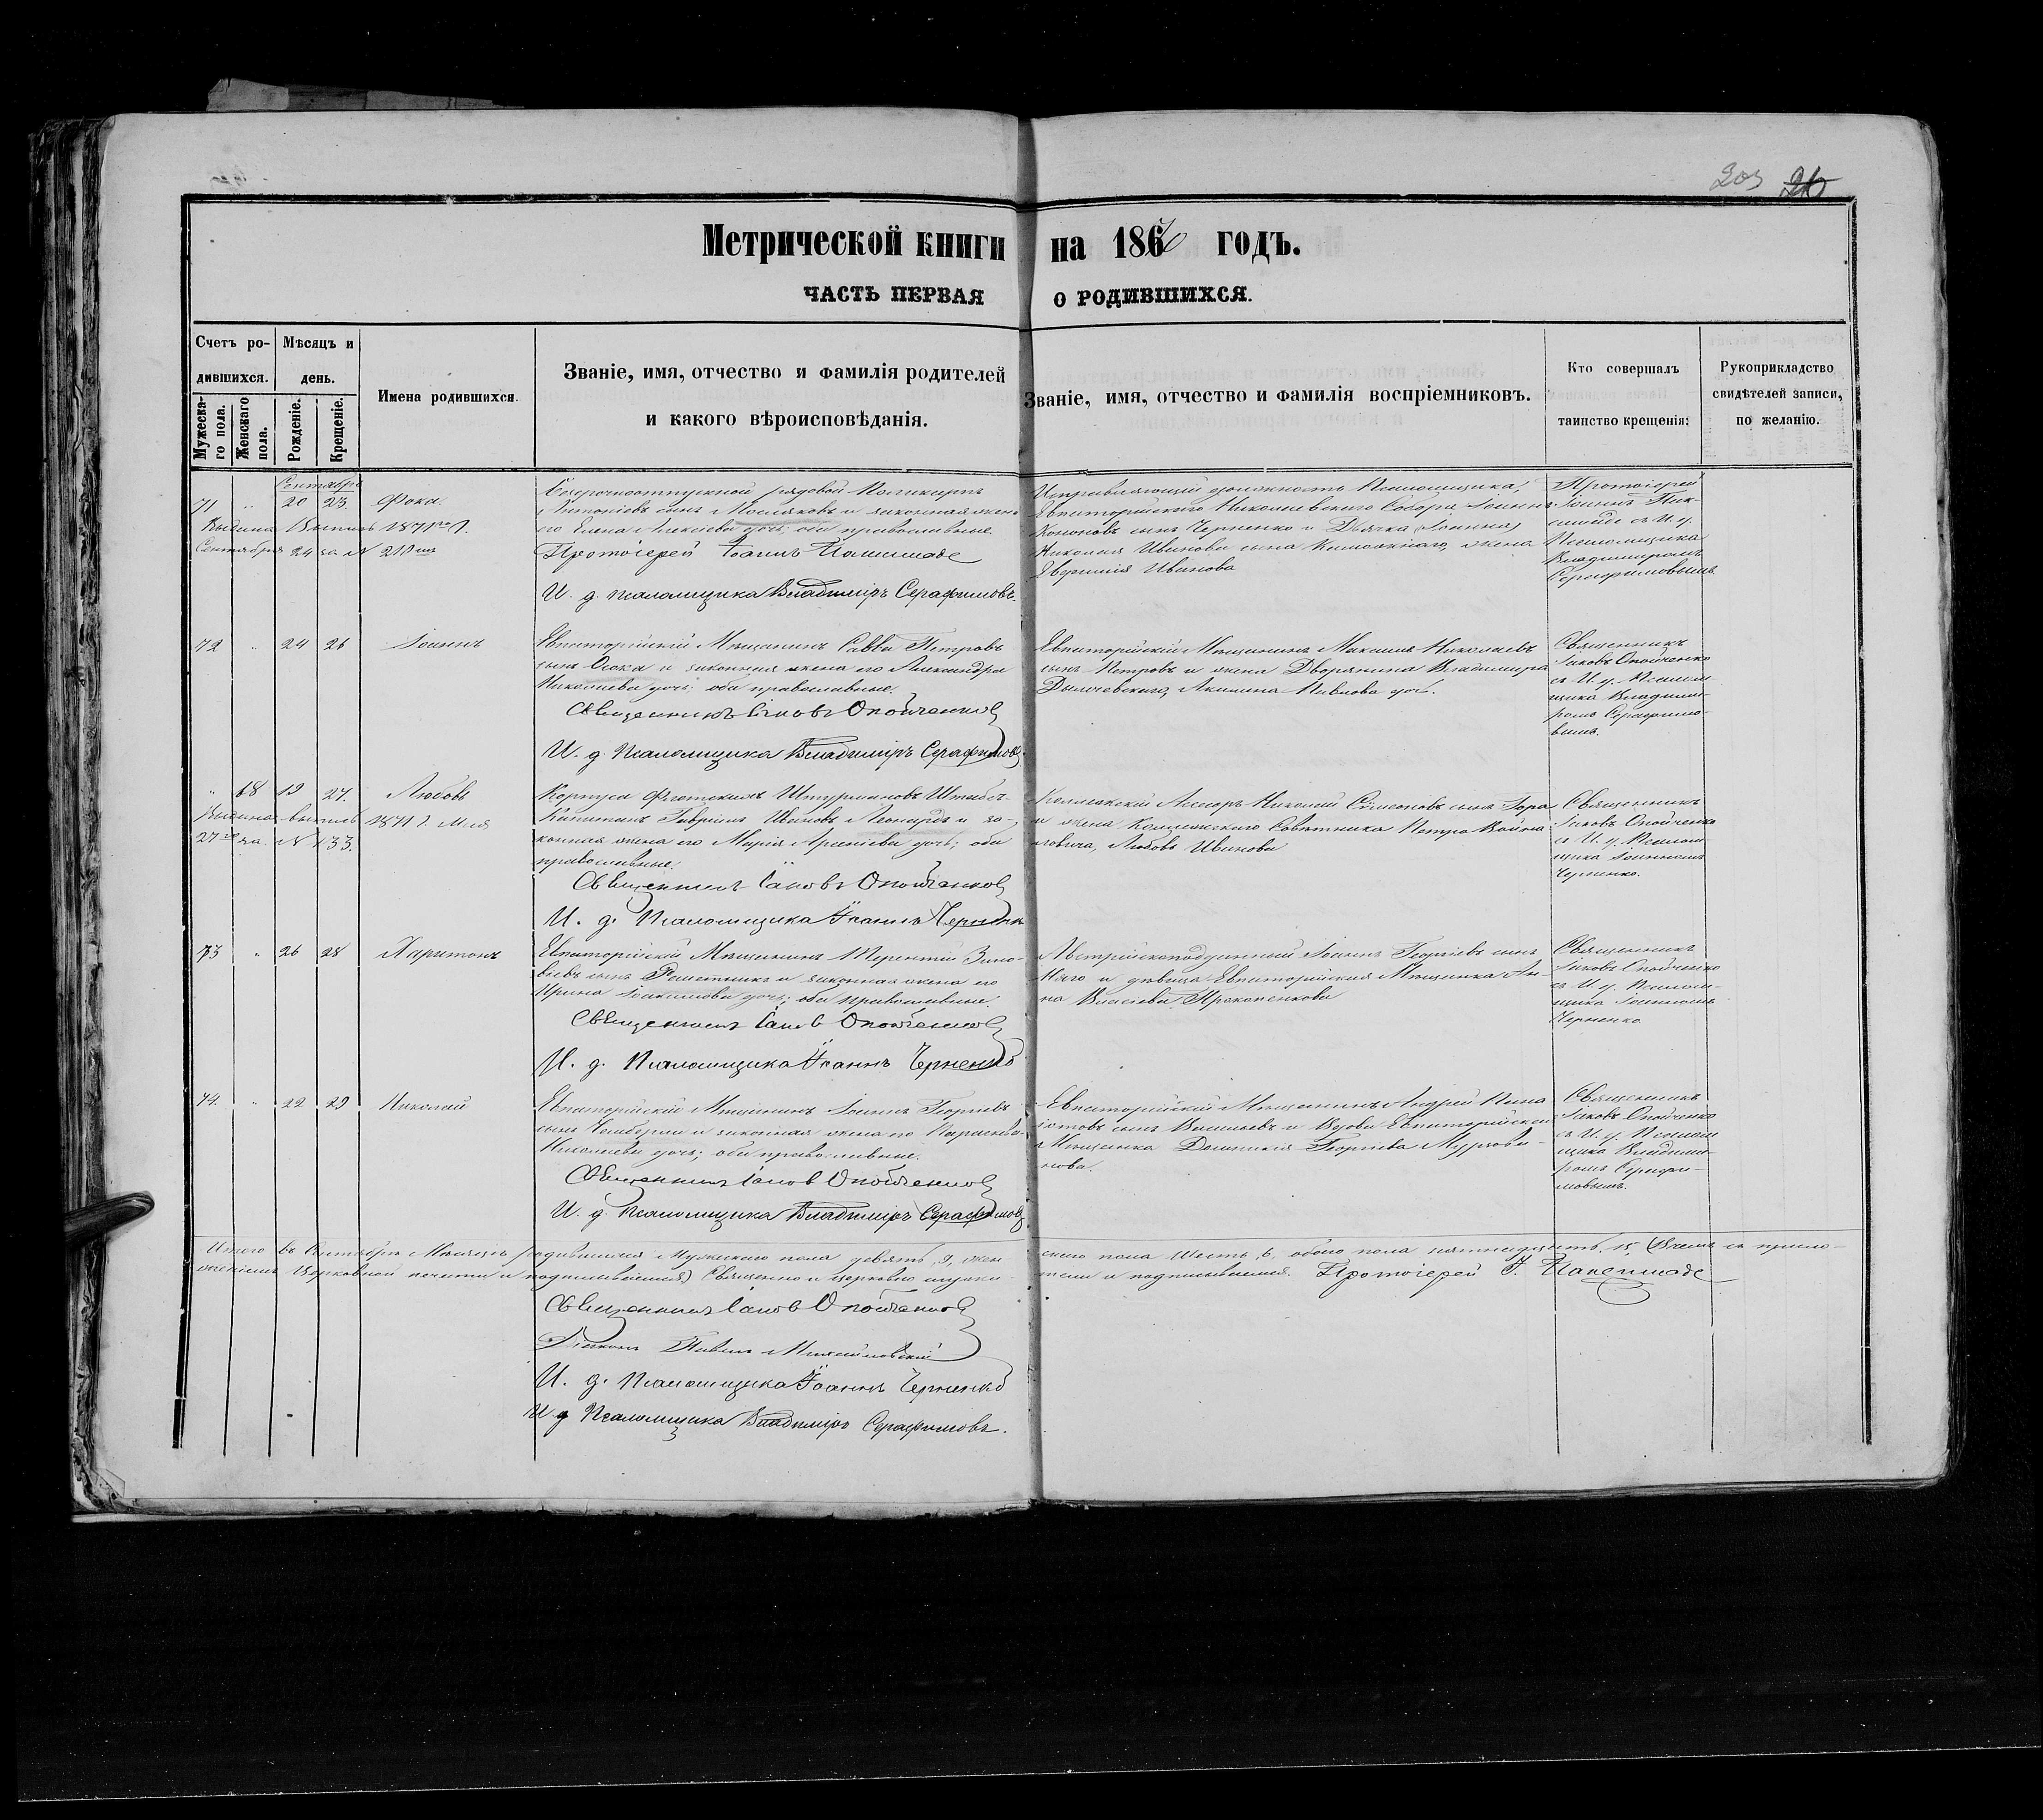 203 26
Метрической книги на 1870 годъ.
ЧАСТЬ ПЕРВАЯ О РОДИВШИХСЯ.
Счетъ родившихся.
Мужескаго пола.
Женскаго пола.
Мѣсяцъ и день.
Рожденіе.
Крещеніе.
Имена родившихся.
Званіе, имя, отчество и фамилія родителей
и какого вѣроисповѣданія.
Званіе, имя, отчество и фамилія воспріемниковъ.
Кто совершалъ
таинство крещенія:
Рукоприкладство
свидѣтелей записи,
по желанію.
Сентябрь
71 " 20 23 Фока.
Выдана Выпись 1871 го г.
Сентября 24 за №
рядовой Поликарпъ
сынъ и законная жена
его Елена Алексіева дочь; оба православные.
Протоіерей Іоаннъ
И. д. псаломщика Владиміръ Серафимовъ.
Исправляющій должность Псаломщика,
Евпаторійскаго Николаевскаго Собора Іоаннъ
Кононовъ сынъ Черненко и Дьячка
Николая Иванова сына жена
Евгенія Иванова
Протоіерей
Іоаннъ
съ И. д.
Псаломщика
Владиміромъ
Серафимовымъ.
72 " 24 26 Іоаннъ
Евпаторійскій Мѣщанинъ Савва Петровъ
сынъ и законная жена его Александра
Николаева дочь; оба православные.
Священникъ Іаковъ Опойченко
И. д. Псаломщика Владиміръ Серафимовъ.
Евпаторійскій Мѣщанинъ Николаевъ
сынъ Петровъ и жена Дворянина Владимира
Акилина Павлова дочь.
Священникъ
Іаковъ Опойченко
съ И. д. Псалом-
щика Владими-
ромъ Серафимо-
вымъ.
" 68 19 27. Любовь
Выдана выпись 1871 г. Мая
27 го за № 133.
Корпуса Флотскихъ Штурмановъ Штабсъ-
Капитанъ Гавріилъ Ивановъ и за-
конная жена его Марія Арсеніева дочь; оба
православные.
Священникъ Іаковъ Опойченко
И. д. Псаломщика Іоаннъ Черненко
Коллежскій Ассесоръ Николай Симеоновъ сынъ
и жена Коллежскаго Совѣтника Петра Война-
ловича, Любовь Иванова
Священникъ
Іаковъ Опойченко
съ И. д. Псалом-
щика Іоанномъ
Черненко.
73 " 26 28 Харитонъ
Евпаторійскій Мѣщанинъ Терентій Зино-
віевъ сынъ Решетникъ и законная жена его
Ирина Іоакимова дочь; оба православные.
Священникъ Іаковъ Опойченко
И. д. Псаломщика Іоаннъ Черненко
Австрійскоподданный Іоаннъ Георгіевъ сынъ
и дѣвица Евпаторійская Мѣщанка Ан-
на Прокопенкова
Священникъ
Іаковъ Опойченко
съ И. д. Псалом-
щика Іоанномъ
Черненко.
74. " 22 29 Николай
Евпаторійскій Мѣщанинъ Іоаннъ Георгіевъ
сынъ и законная жена его Параскева
Николаева дочь; оба православные.
Священникъ Іаковъ Опойченко
И. д. Псаломщика Владиміръ Серафимовъ
Евпаторійскій Мѣщанинъ Андрей Пана-
іотовъ сынъ Васильевъ и Вдова Евпаторійская
Мѣщанка Георгіева
нова.
Священникъ
Іаковъ Опойченко
съ И. д. Псалом-
щика Владими-
ромъ Серафи-
мовымъ.
Итого въ Сентябрѣ Мѣсяцѣ родившихся Мужескаго пола девять, 9, жен-
скаго пола шесть, 6, обоего пола пятнадцать, 15, въ чемъ съ прило-
женіемъ Церковной печати и подписываемся) Священно и церковно служи-
тели и подписываемся. Протоіерей І.
Священникъ Іаковъ Опойченко
Діаконъ Павелъ
И. д. Псаломщика Іоаннъ Черненко
И д Псаломщика Владиміръ Серафимовъ.